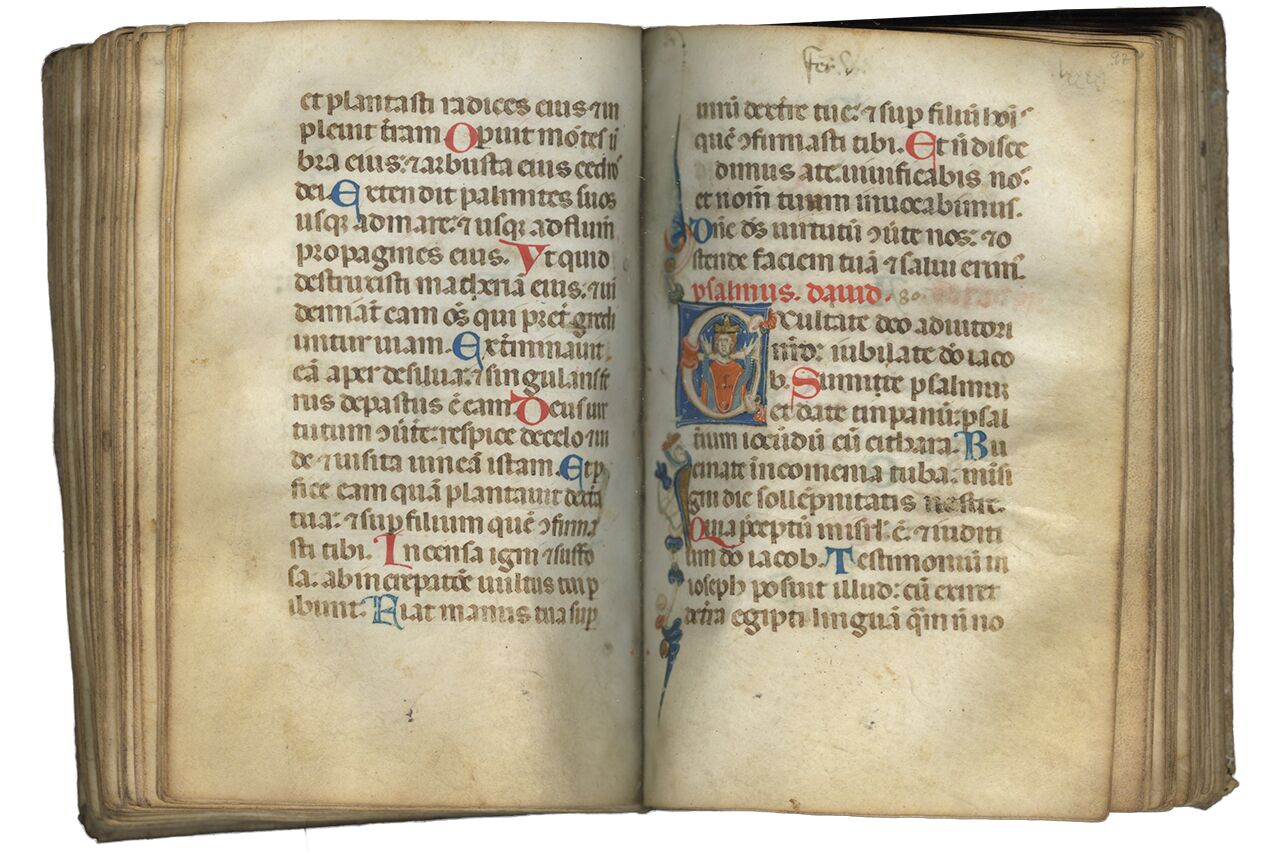 et plantasti radices eius ⁊ im
pleuit t̄ram Opuit mo̅tes ū
bra eius: ⁊ arbusta eius cedros
dei Extendit palmites suos
usq; ad mare: ⁊ usq; ad flum̄
propagines eius. Vt quid
destruxisti mac̣heriā eius: ⁊ ui
demiāt eam oēs qui pret̄gredi
untur uiam. Ext̄minauit
eā aper de silua: ⁊ singularis fe
rus depastus ē eam Deus uir
tutum ꝯūte: respice de celo ⁊ ui
de ⁊ uisita uineā istam. Et ꝑ
fice eam quā plantauit dext̄a
tua: ⁊ sup̱ filium quē ꝯfirma
sti tibi. Incensa igni ⁊ suffo
sa: ab increpatiōe uultus tui ꝑ
ibunt. Fiat manus tua sup̱
Fer. V.
97
uirū dext̄re tue: ⁊ sup̱ filiū hoīs
quē ꝯfirmasti tibi. Et ñ disce
dimus a te: uiuificabis nos:
et nom̄ tuum inuocabimus.
Dn̄e ds̄ uirtutū ꝯūte nos: ⁊ o
stende faciem tuā ⁊ salui erim̄.
psalmus. dauid. 80
Exultate deo adiutori
nr̄o: iubilate dō iaco
b. Sumite psalmum
et date tinpanū: psal
t̄ium iocūdū cū cithara. Bu
cinate in eomenia tuba: insi
gni die sollēpnitatis nostre.
Quia p̄ceptū in isrl̄ ē: ⁊ iuditi
um dō iacob. Testimoniū in
ioseph posuit illud: cū exiret
de t̄ra egipti linguā qͣm ñ no